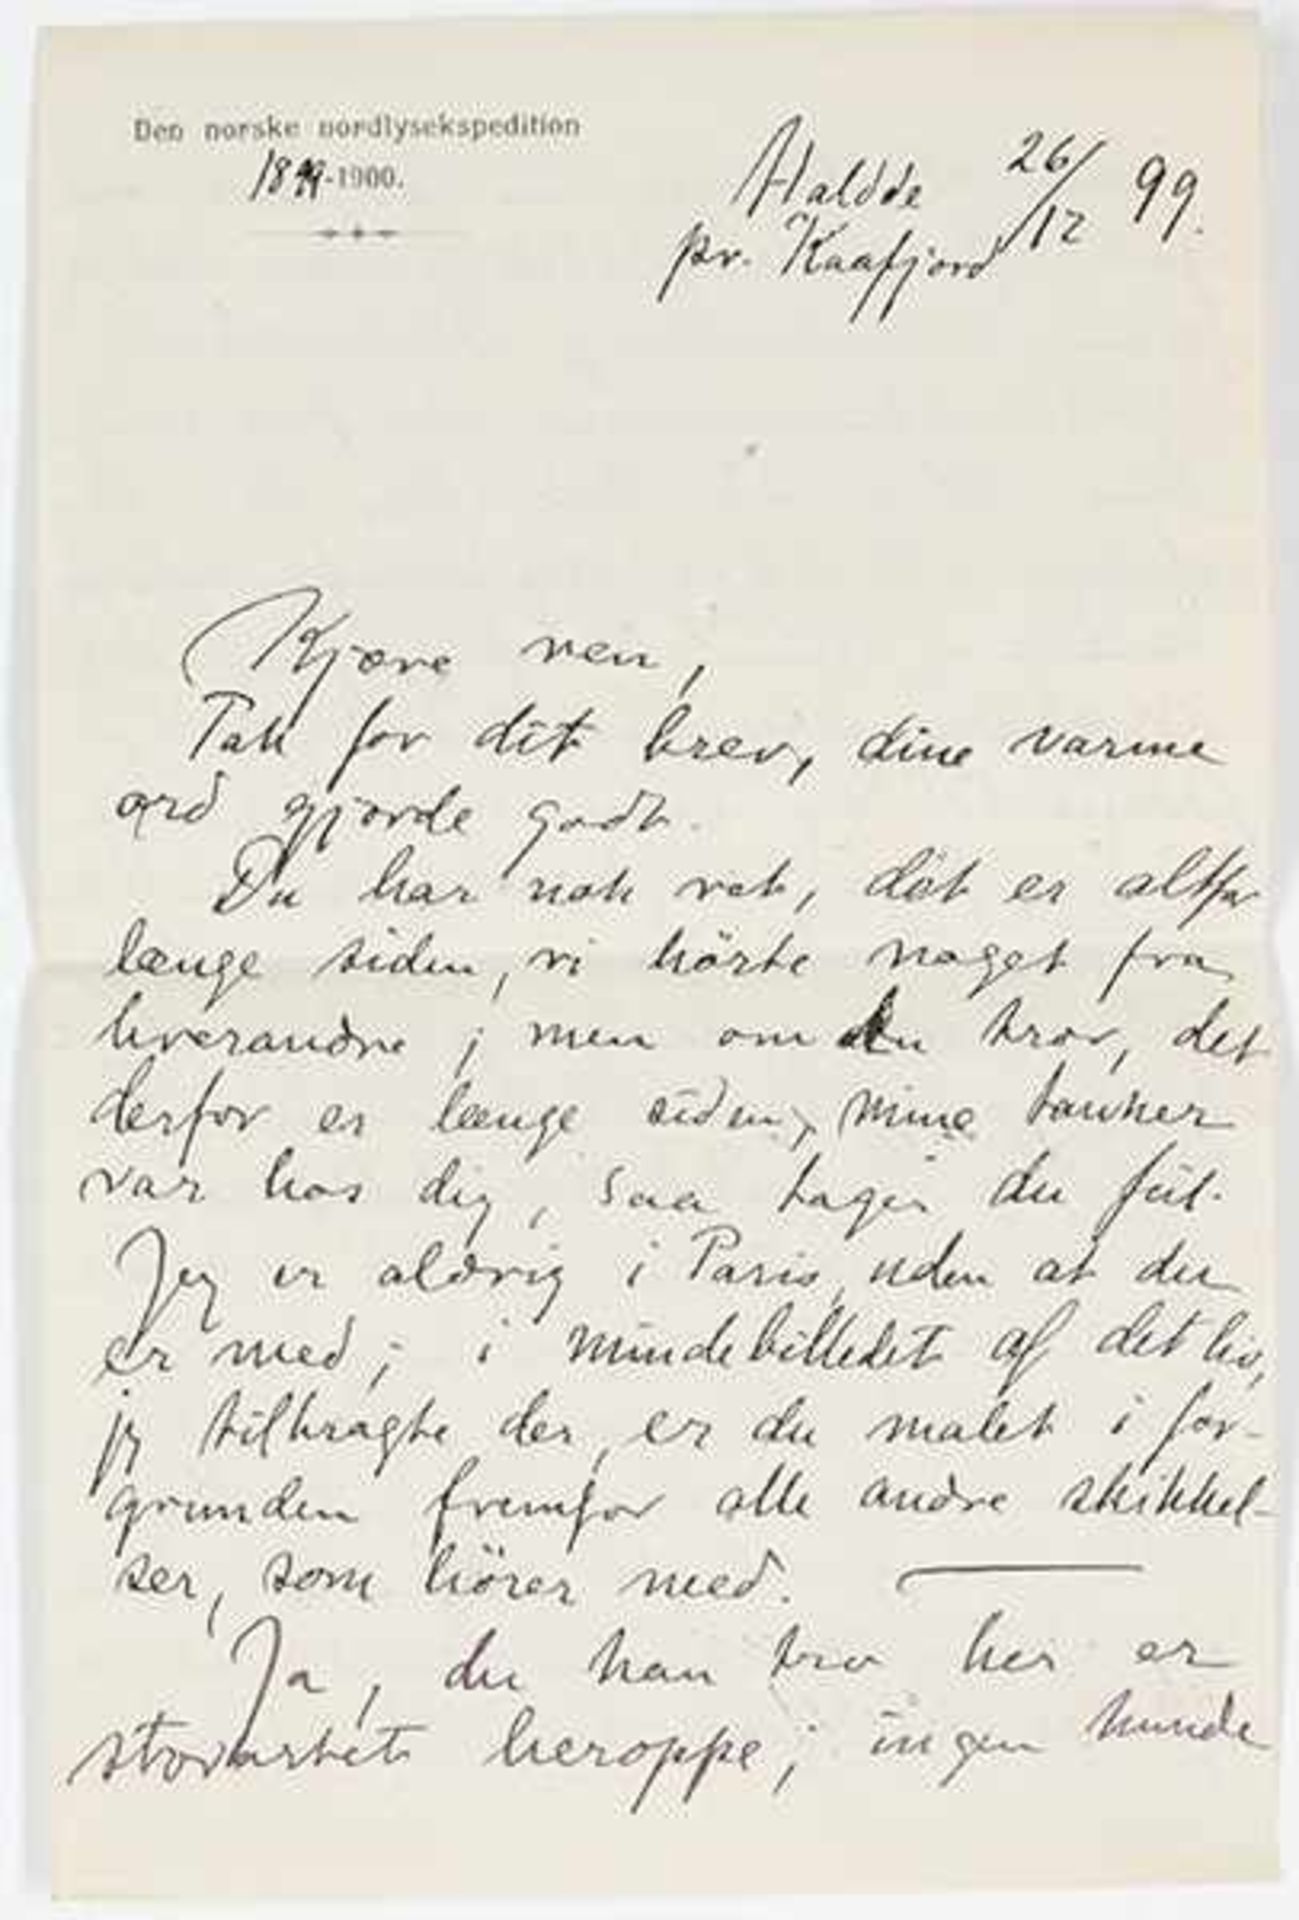 Den norske nordlysekspedition
1899-1900.
Haldde 26/12 99.
pr. Kaafjord
Kjære ven,
Tak for dit brev, dine varme
ord gjorde godt.
Du har nok ret, det er altfor
længe siden, vi hörte noget fra
hverandre; men om du tror, det
derfor er længe siden, mine tanker
var hos dig, saa tager du feil.
Jeg er aldrig i Paris, uden at du
er med; i mindebilledet af det liv,
jeg tilbragte der, er du malet i for-
grunden fremfor alle andre skikkel-
ser, som hörer med. —
Ja, du kan tro her er
storartet heroppe; ingen kunde